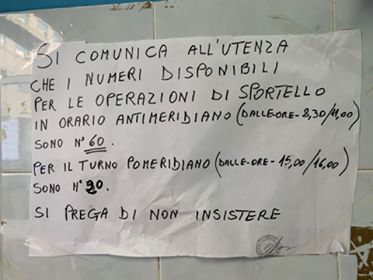 SI COMUNICA ALL'UTENZA
CHE I NUMERI DISPONIBILI
PER LE OPERAZIONI DI SPORTELLO
IN ORARIO ANTIMERIDIANO (DALLE-ORE-8,30/11,00)
SONO N° 60.
PER IL TURNO POMERIDIANO (DALLE-ORE-15,00/16,00)
SONO N° 20.
SI PREGA DI NON INSISTERE